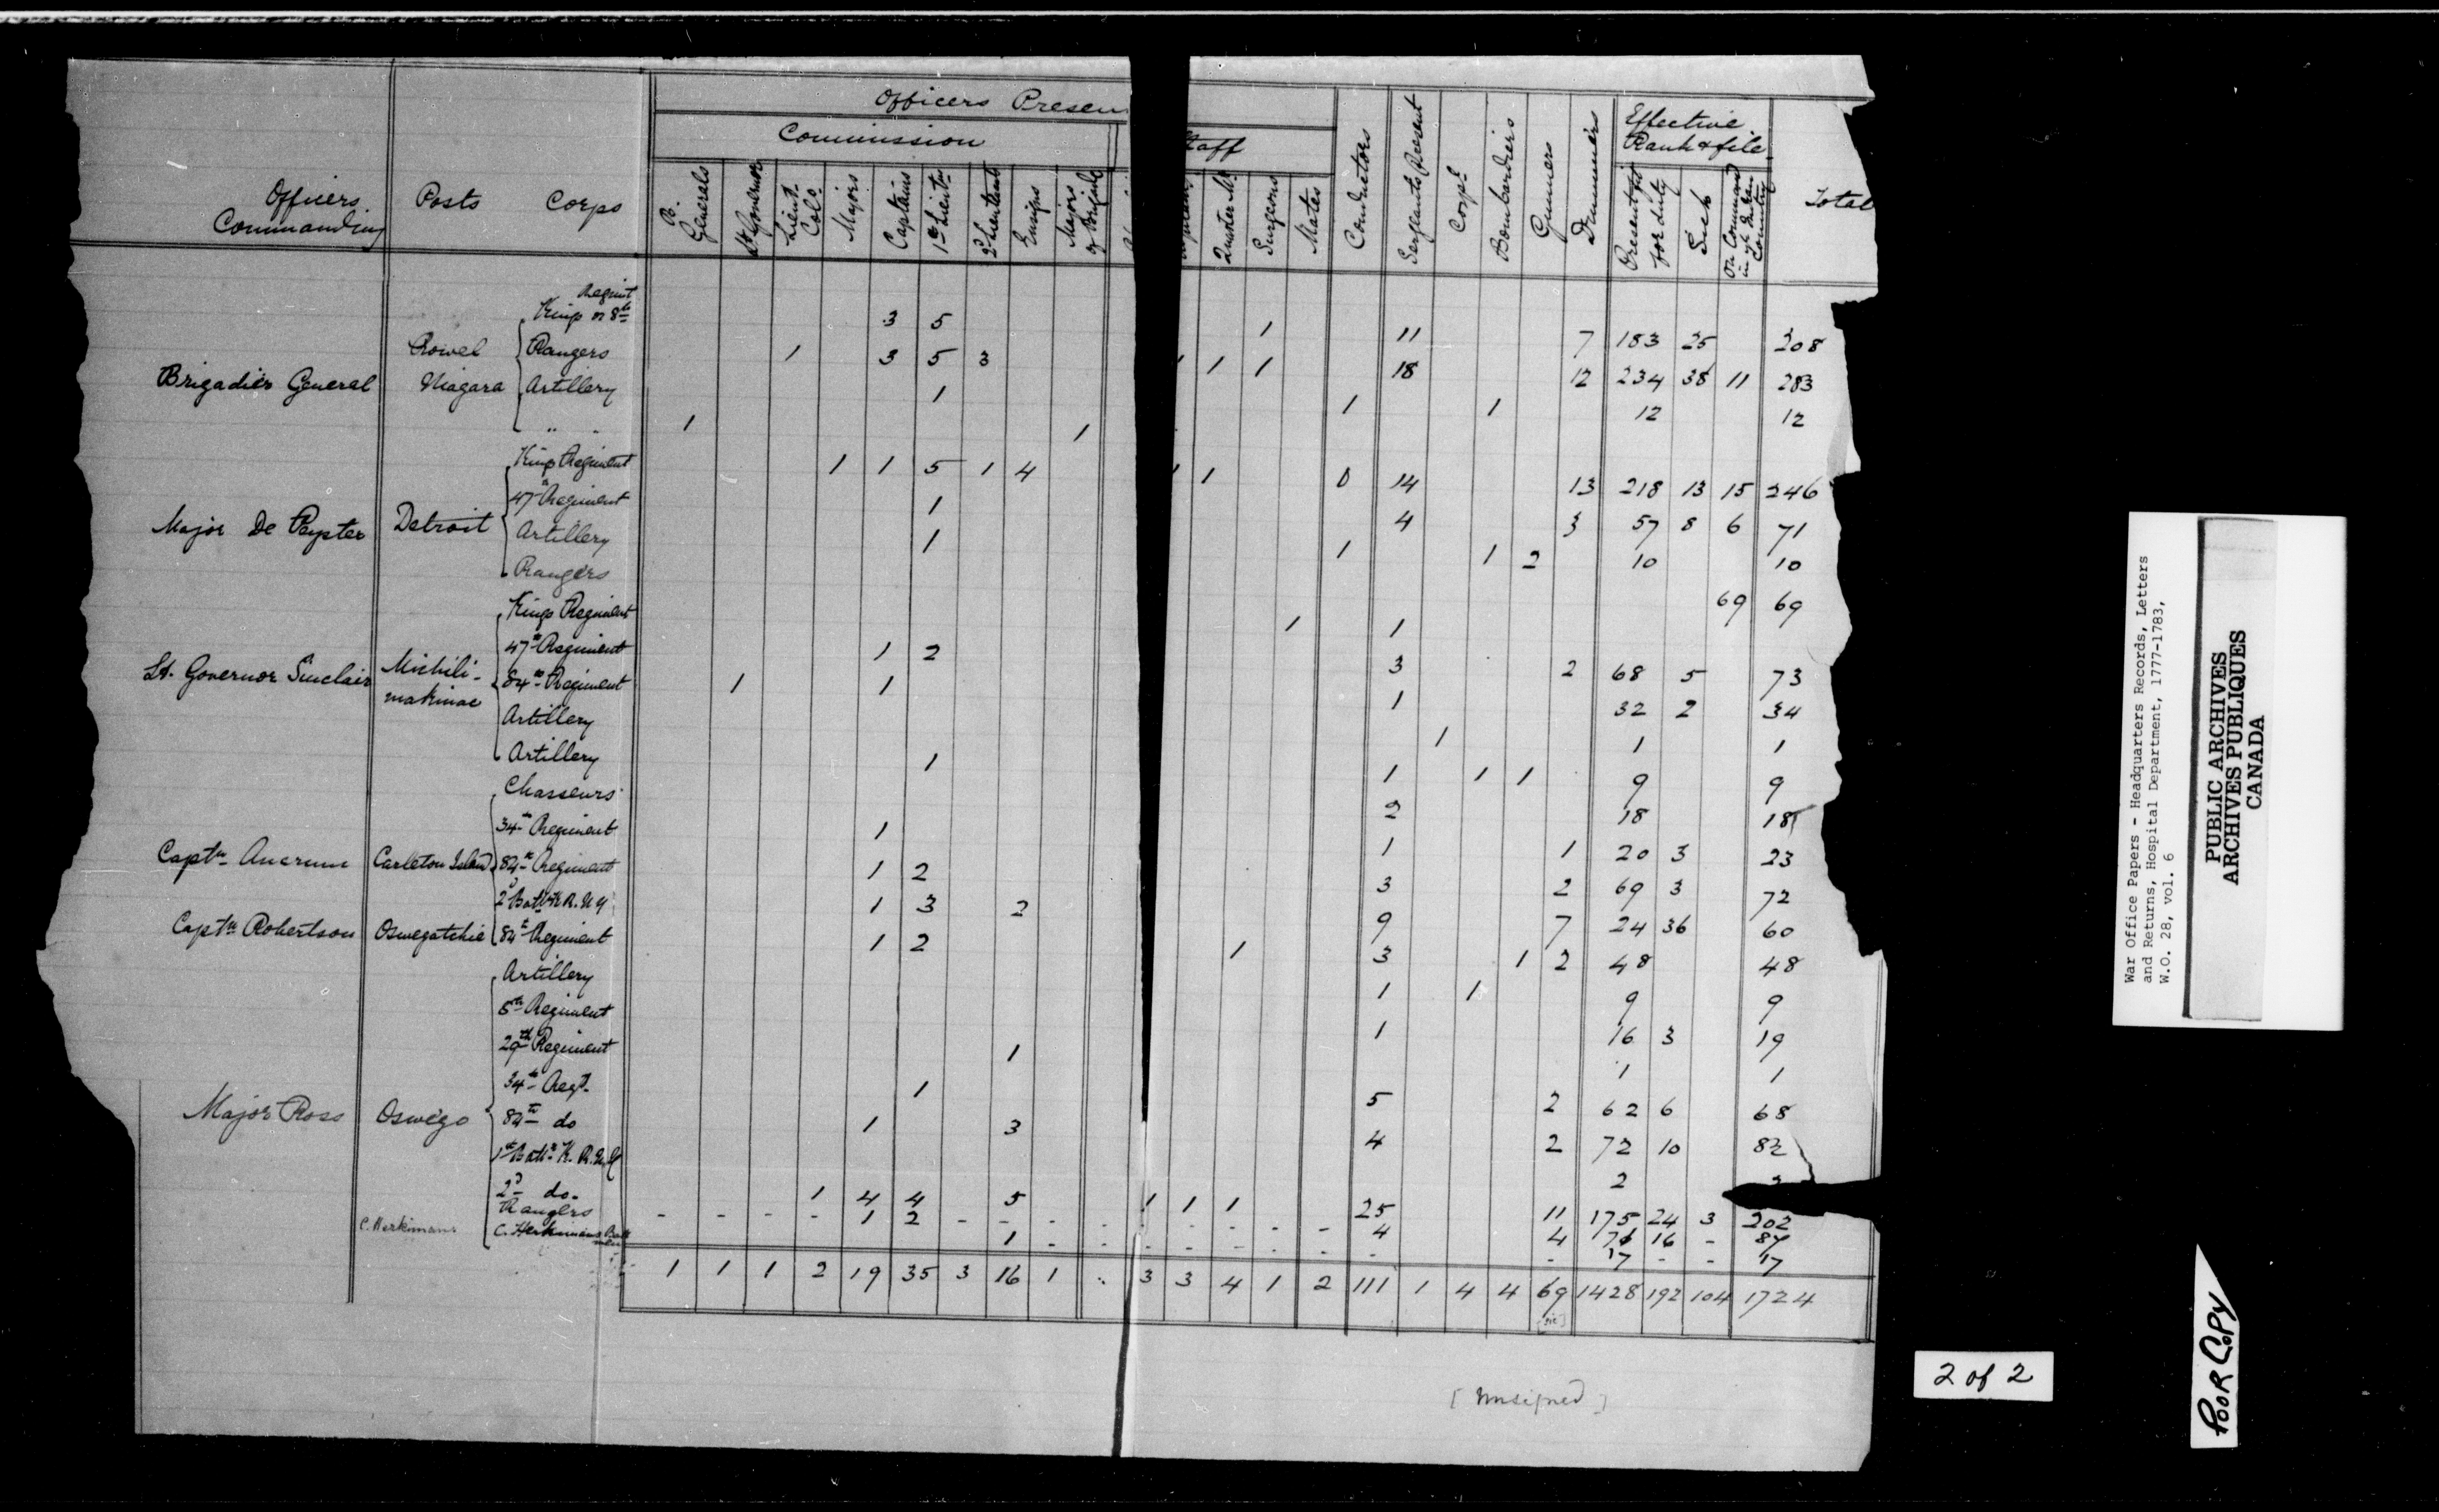 Officers Presen
Commission
taff
Effective
Rank & file
Officers Commanding Posts Corps
B. Generals Lt. Governor Lieut. Colo. Majors Captains 1st Lieuts 2d Lieutenant Ensigns Majors of Brigade Quarter Mr. Surgeons Mates Conductors Sergeants Present Corpl Bombardiers Gunners Drummers Present fit for duty Sick On Command in ye Indian Country Total
Regimt
Kings or 8th 3 5 1 11 7 183 25 208
Rangers 1 3 5 3 1 1 1 18 12 234 38 11 283
Brigadier General Niagara Artillery 1 1 1 12 12
" " 1 1
Kings Regiment 1 1 5 1 4 1 1 0 14 13 218 13 15 246
47th Regiment 1 4 3 57 8 6 71
Major De Peyster Detroit Artillery 1 1 1 2 10 10
Rangers 69 69
Kings Regiment 1 1
47th Regiment 1 2 3 2 68 5 73
Lt. Governor Sinclair Michili-makinac 84th Regiment 1 1 1 32 2 34
Artillery 1 1 1
Artillery 1 1 1 1 9 9
Chasseurs 2 18 18
34th Regiment 1 1 1 20 3 23
Captn Ancrum Carleton Island 84th Regiment 1 2 3 2 69 3 72
2d Battn K R. N Y 1 3 2 9 7 24 36 60
Captn Robertson Oswegatchie 84th Regiment 1 2 1 3 1 2 48 48
Artillery 1 1 9 9
8th Regiment 1 16 3 19
29th Regiment 1 1 1
34th Regt. 1 5 2 62 6 68
Major Ross Oswego 84th do 1 3 4 2 72 10 82
1st Battn K. R. N. Y 2
2d do. 1 4 4 5 1 1 1 25 11 175 24 3 202
Rangers - - - - 1 2 - - - - - - - - - 4 4 71 16 - 87
C. Herkimans C. Herkimans 1 - - - - - - - - - 17 - - 17
1 1 1 2 19 35 3 16 1 3 3 4 1 2 111 1 4 4 69 1428 192 104 1724
[sic]
[Unsigned]
War Office Papers - Headquarters Records, Letters
and Returns, Hospital Department, 1777-1783,
W.O. 28, vol. 6
PUBLIC ARCHIVES
ARCHIVES PUBLIQUES
CANADA
2 of 2
POOR COPY